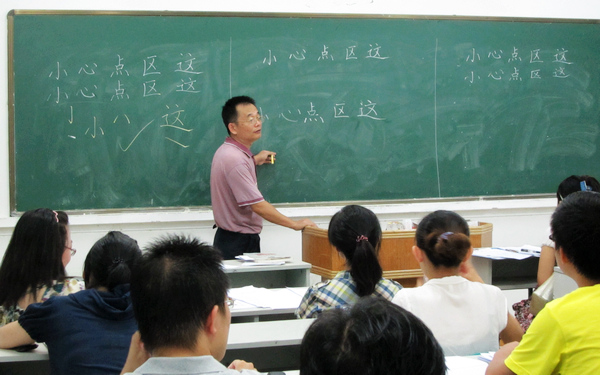 小心点区这
小心点区这
小 八 这
小心点区这
小心点区这
小心点区这
小心点区这